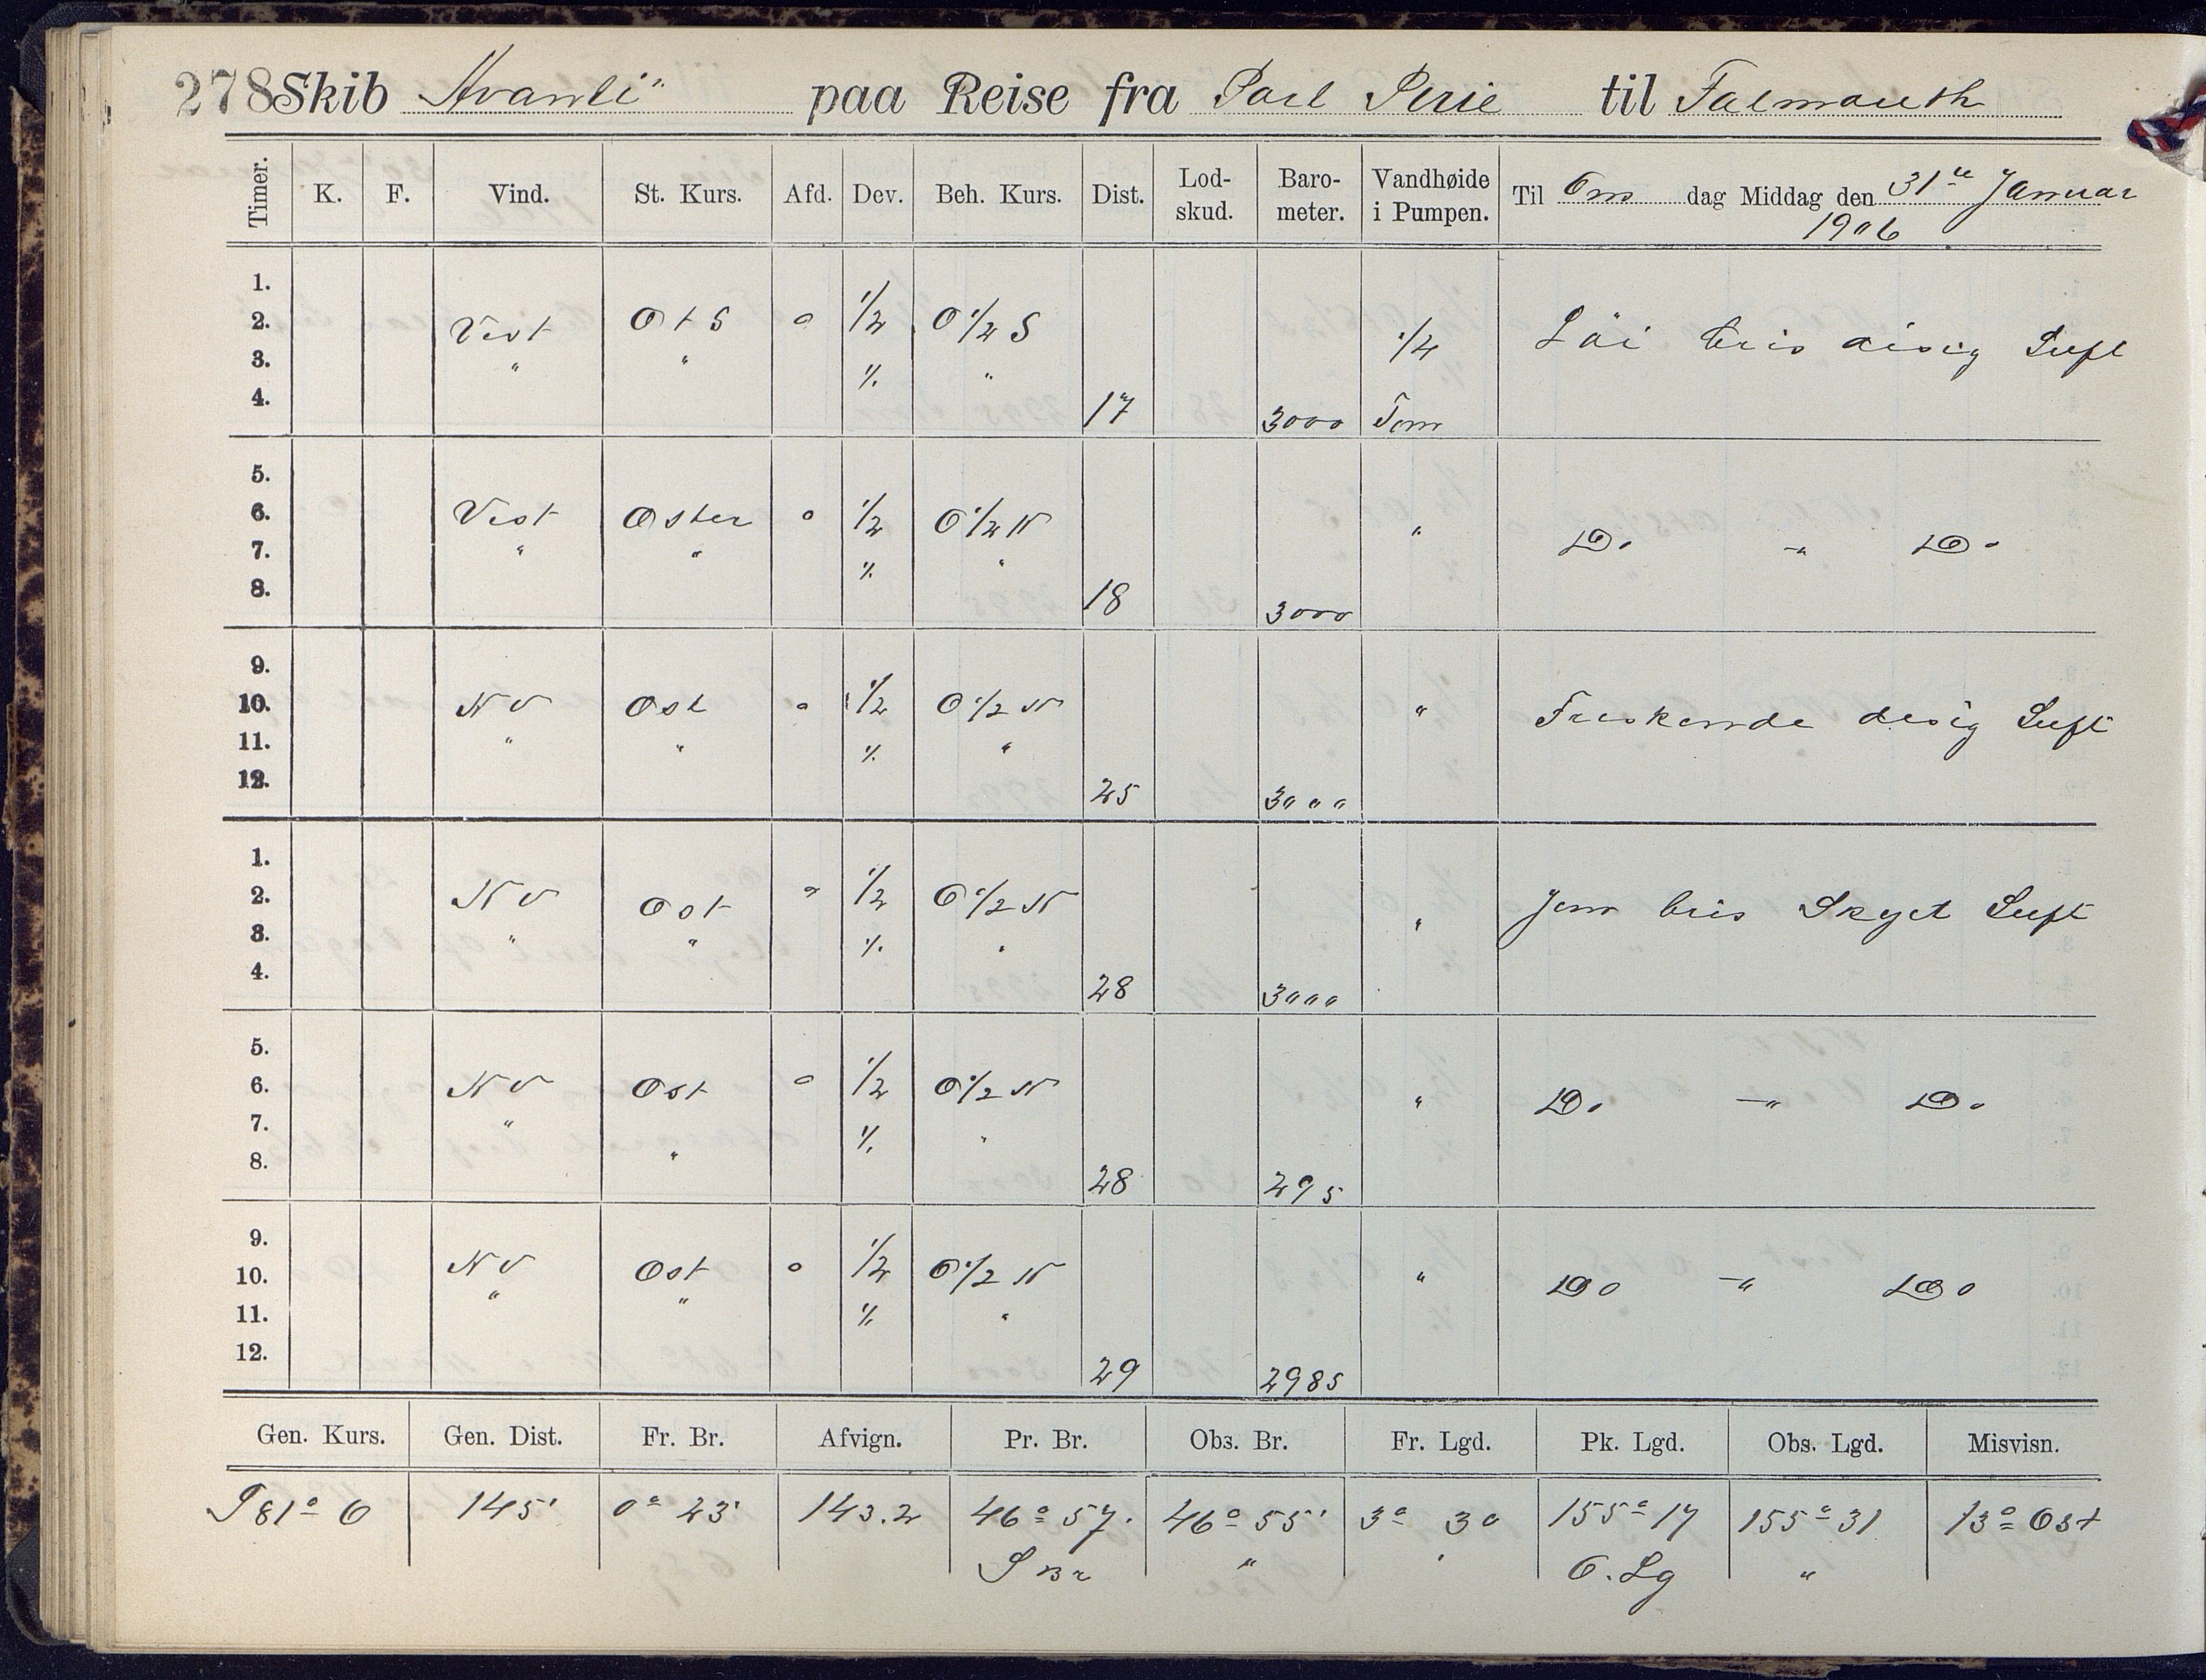 278 Skib Avanti" paa Reise fra Port Pirie til Falmouth
Timer. K. F. Vind. St. Kurs. Afd. Dev. Beh. Kurs. Dist. Lod-skud. Baro-meter. Vandhøide i Pumpen. Til Ons dag Middag den 31te Januar
1906
1.
2. Vest O t S o 1/2 O 1/2 S 1/4 Löi bris disig Luft
3. " " %. "
4. 17 3000 Tom
5.
6. Vest Oster o 1/2 O 1/2 N "
7. " " %. " Do. -" Do.
8. 18 3000
9.
10. NV Ost o 1/2 O 1/2 N " Friskende disig Luft
11. " " %. "
12. 25 3000
1.
2. NV Ost o 1/2 O 1/2 N " Jevn bris Skyet Luft
3. " " %. "
4. 28 3000
5.
6. NV Ost o 1/2 O 1/2 N " Do. -" Do.
7. " " %. "
8. 28 295
9.
10. NV Ost o 1/2 O 1/2 N " Do -" Do
11. " " %. "
12. 29 2985
Gen. Kurs. Gen. Dist. Fr. Br. Afvign. Pr. Br. Obs. Br. Fr. Lgd. Pk. Lgd. Obs. Lgd. Misvisn.
S 81° O 145' 0° 23' 143.2 46° 57' 46° 55' 3° 30 155° 17 155° 31 13° Ost
S Br " ' O. Lg "